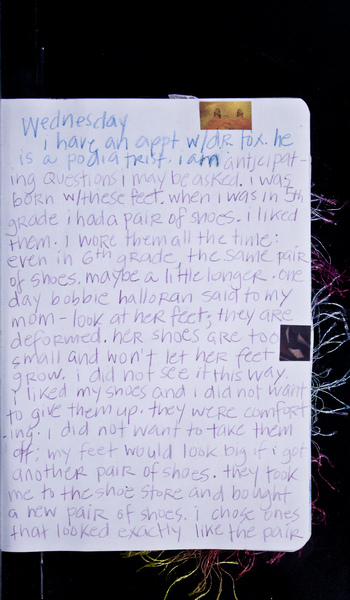 Wednesday
i have an appt w/dr. fox. he
is a podiatrist. i am anticipat-
ing questions i may be asked. i was
born w/these feet. when i was in 5th
grade i had a pair of shoes. i liked
them. i wore them all the time:
even in 6th grade, the same pair
of shoes. maybe a little longer. one
day bobbie halloran said to my
mom - look at her feet, they are
deformed. her shoes are too
small and won't let her feet
grow. i did not see it this way.
i liked my shoes and i did not want
to give them up. they were comfort
-ing. i did not want to take them
off; my feet would look big if i got
another pair of shoes. they took
me to the shoe store and bought
a new pair of shoes. i chose ones
that looked exactly like the pair